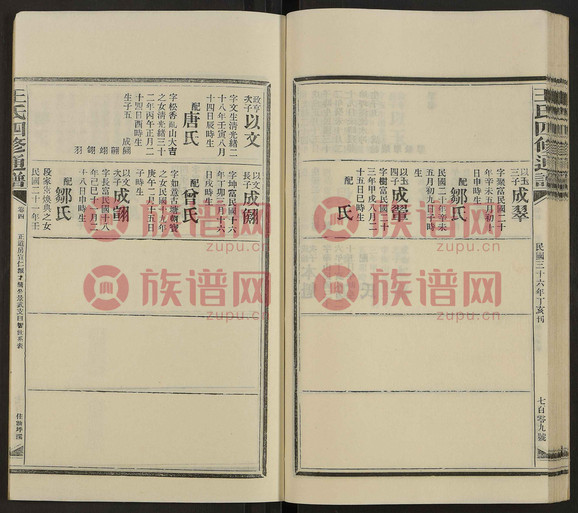 王氏四修通譜
民國三十六年丁亥刊
七百零九號
以玉三子
成翠
字聚富民國二十
年辛未五月初十
日申時生
配
鄒氏
民國二十年辛未
五月初九日子時
生
以玉四子
成翬
字樹富民國二十
三年甲戌八月二
十五日戌時生
配
氏
政亨次子
以文
字文生清光緒二
十八年壬寅八月
十四日辰時生
配
唐氏
字松香亂山大吉
之女清光緒三十
二年丙午正月二
十盟日酉時生
生子五
成
翊
翎
羽
以文長子
成翮
字坤富民國十六
年丁卯三月十六
日戌時生
配
曾氏
之女民國十九年
庚午二月十五日
子時生
以文次子
成翃
字長富民國十八
年己巳十一月二
十八日申時生
配
鄒氏
段家沖煥典之女
民國二十一年壬
王氏四修通譜
卷四
族谱网
zupu.cn
族谱网
zupu.cn
族谱网
zupu.cn
族谱网
zupu.cn